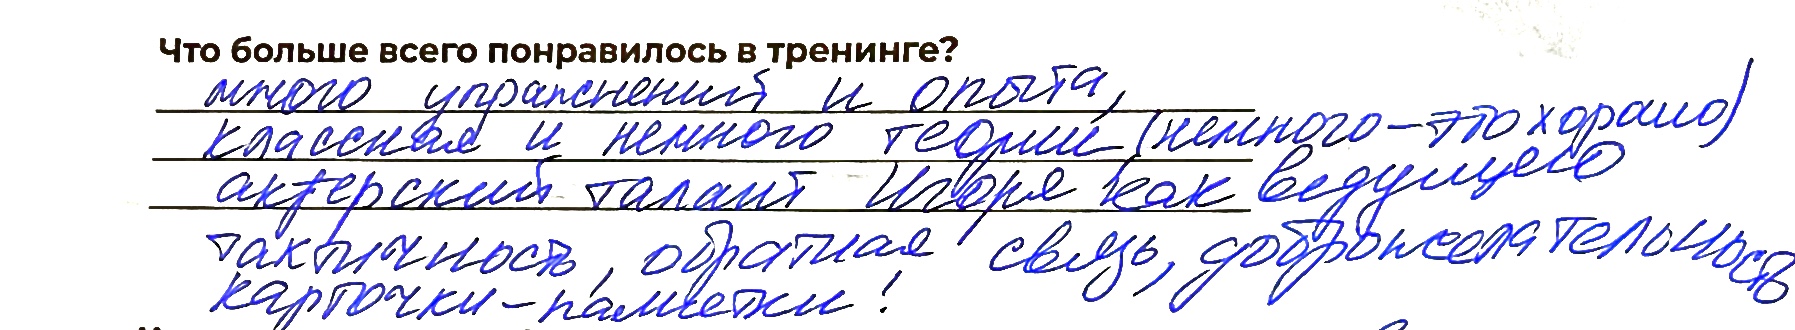 Что больше всего понравилось в тренинге?
много упражнений и опыта,
классная и немного теории (немного – это хорошо)
актерский талант Игоря как ведущего
тактичность, обратная связь, доброжелательность
карточки – памятки!